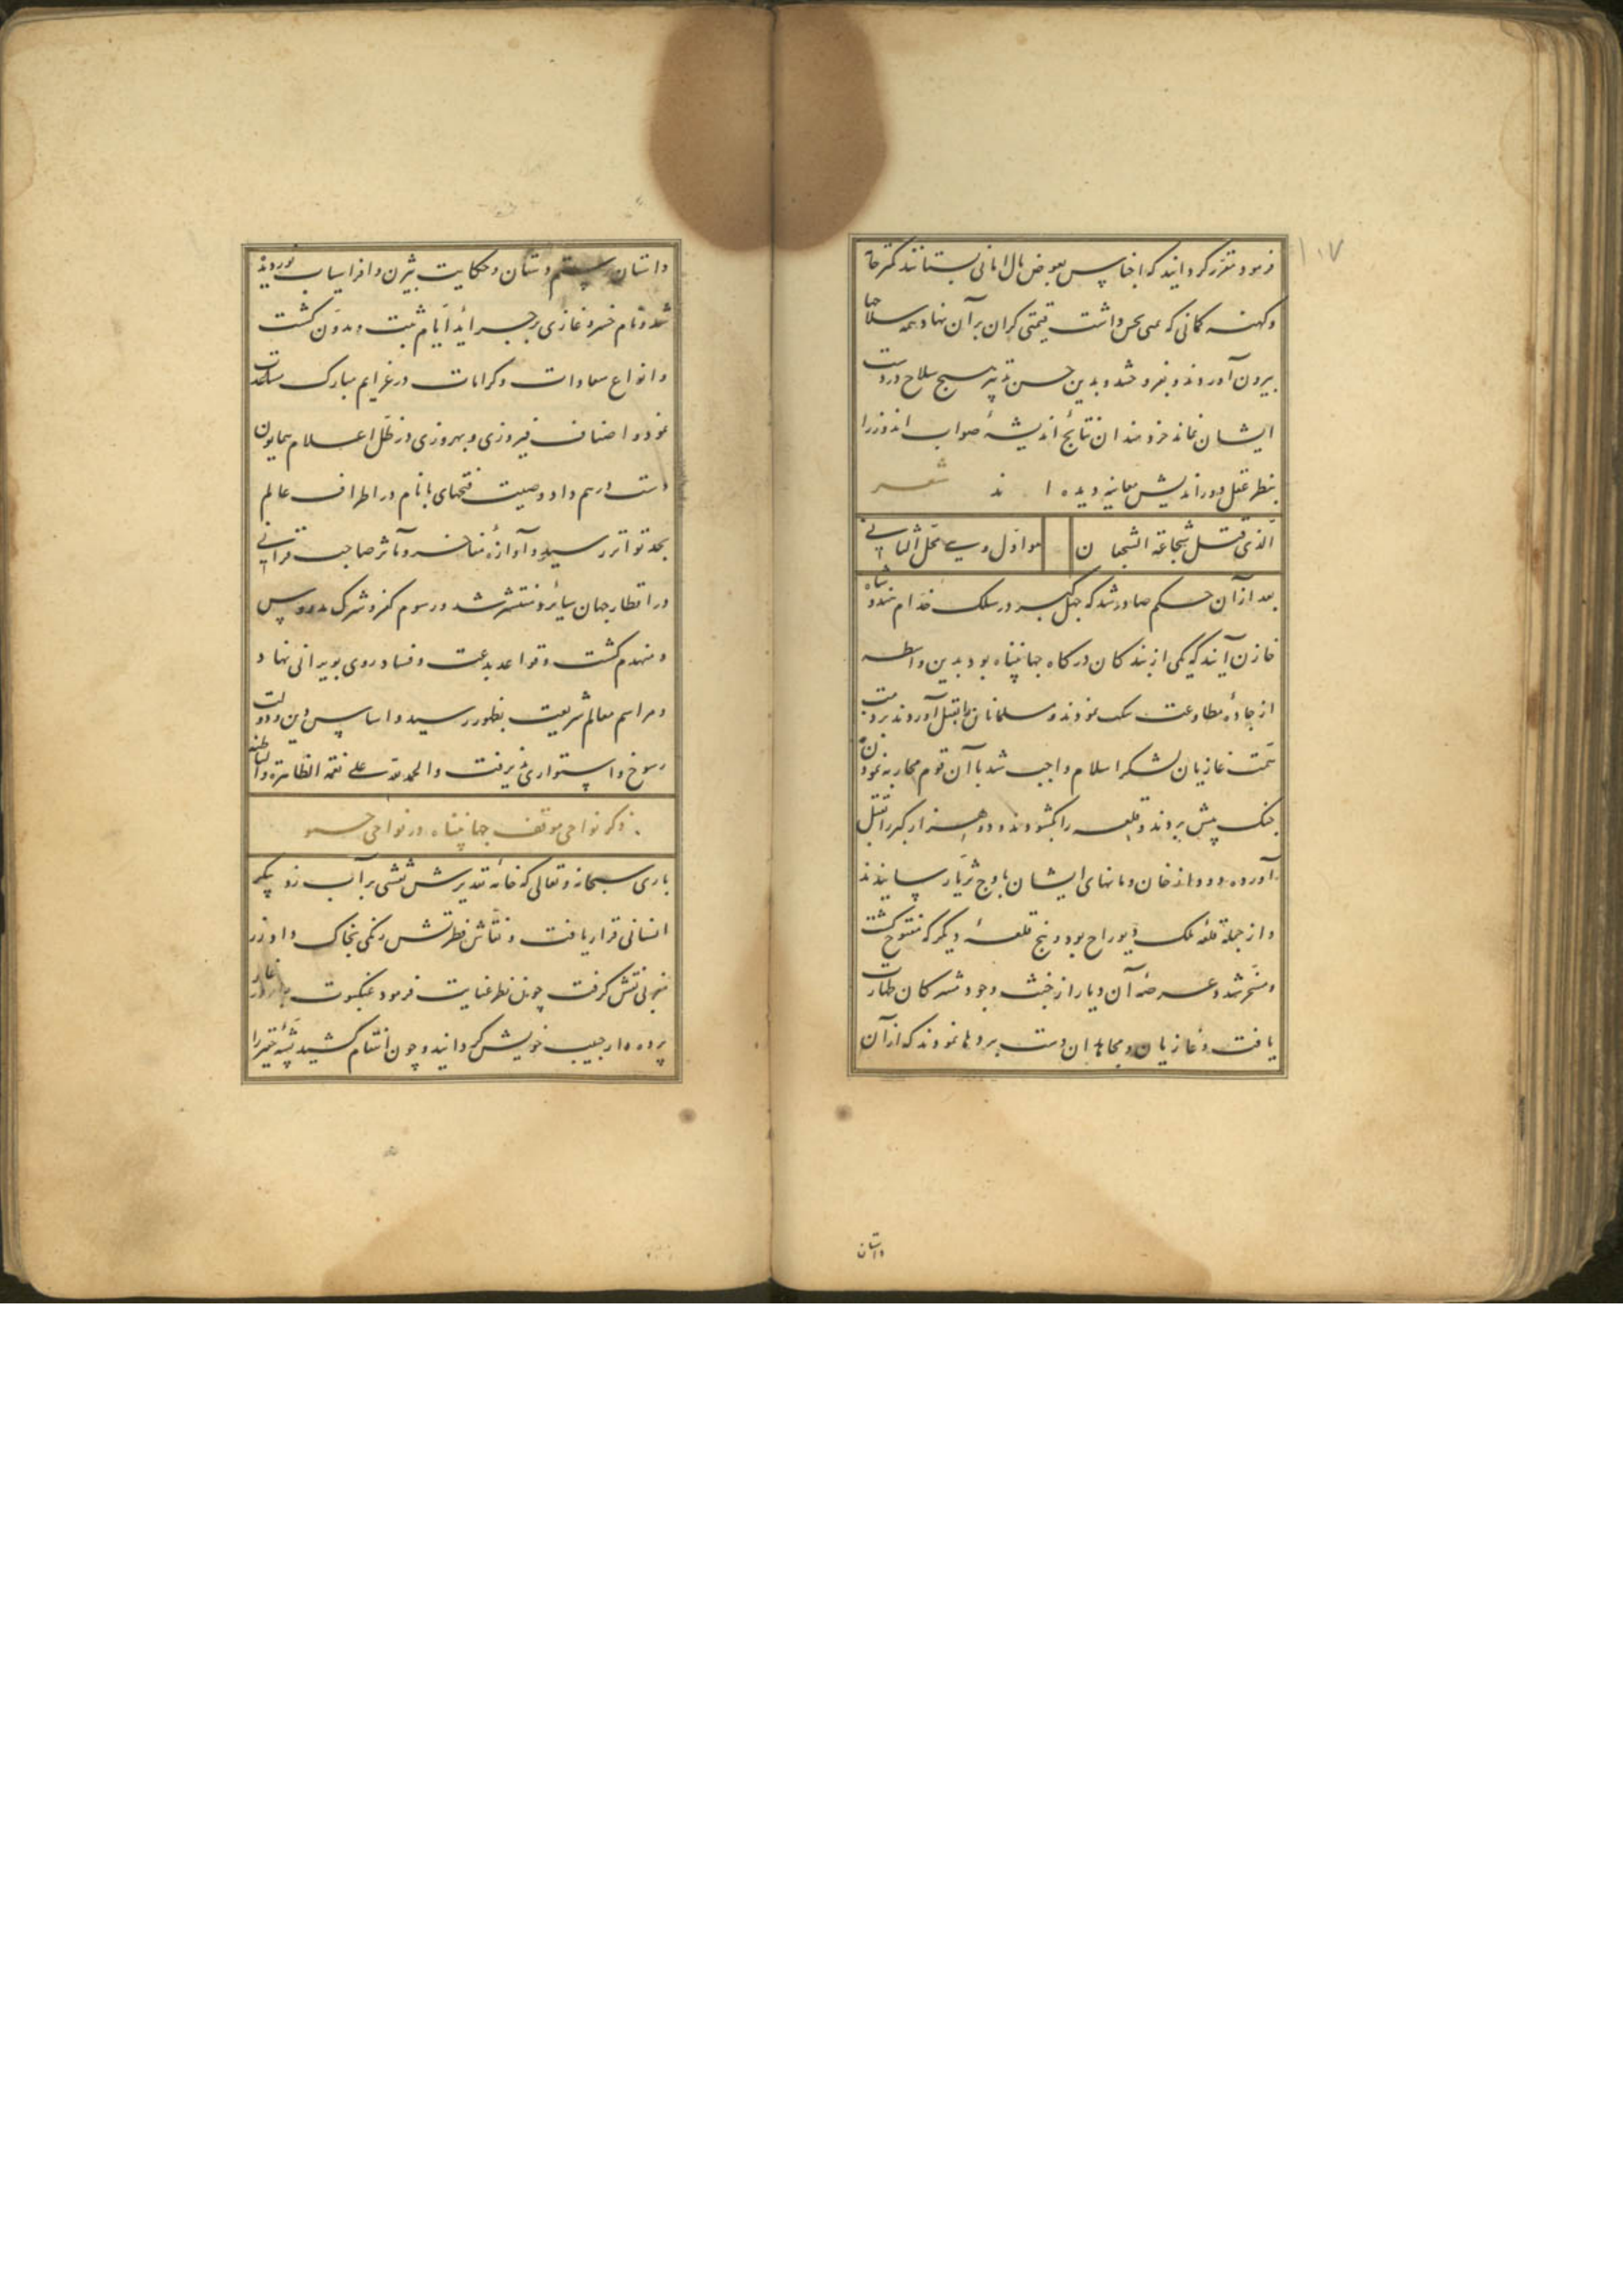 ۱۰۷
فرمود مقرر کردانید که اجناس بعوض مال امانی بستانند کمتر جامه
وکهنه کمانی که می داشت قیمتی کران بر آن نهاد همه سلاحها
بیرون آوردند و بفروختند و بدین حسن تدبیر هیچ سلاح در دست
ایشان نماند خردمندان نتایج اندیشهٔ صواب اندوز را
بنظر عقل دوراندیش معاینه دیده اند شعر
الرّای قبل شجاعة الشجعان
هو اول وهی المحل الثانی
بعد از آن حکم صادر شد که چهل کبر در سلک خدام هندو شاه
خازن آیند که یکی از بندکان درکاه جهانپناه بود بدین واسطه
از جادهٔ مطاوعت نمودند و مسلمانان را بقتل آوردند بر ذمت
همت غازیان لشکر اسلام واجب شد با آن قوم محاربه نمودن
جنک پیش بردند و قلعه را بکشودند و دو هزار کبر را بقتل
آورده دود از خان ومانهای ایشان باوج ثریا رسانیدند
و از جمله قلعه ملک دیوراج بود و پنج قلعهٔ دیکر که مفتوح کشت
و مسخر شد و عرصهٔ آن دیار از خبث وجود مشرکان طهارت
یافت و غازیان و مجاهدان دست بردها نمودند که از آن
داستان
داستان رستم دستان و حکایت بیژن و افراسیاب نوردیده
شد و نام خسرو غازی بر جراید ایام ثبت و مدون کشت
و انواع سعادات و کرامات در عزایم مبارک مساعدت
نمود و اصناف فیروزی و بهروزی در ظل اعلام همایون
دست درهم داد و صیت فتحهای با نام در اطراف عالم
بحد تواتر رسید و آوازهٔ مفاخر و مآثر صاحب قرانی
در اقطار جهان سائر و منتشر شد و رسوم کفر و شرک مدروس
و منهدم کشت و قواعد بدعت و فساد روی بویرانی نهاد
و مراسم معالم شریعت بظهور رسید و اساس دین و دولت
رسوخ و استواری پذیرفت والحمد لله علی نعمه الظاهرة والباطنة
ذکر نواحی موقف جهانپناه در نواحی جمو
باری سبحانه وتعالی که خامهٔ تقدیرش نقشی بر آب زد پیکر
انسانی قرار یافت و نقاش فطرتش رنکی بخاک داد زر
نقش کرفت چون نظر عنایت فرمود عنکبوت
پرده دار حبیب خویش کردانید و چون انتقام کشید پشهٔ حقیر را